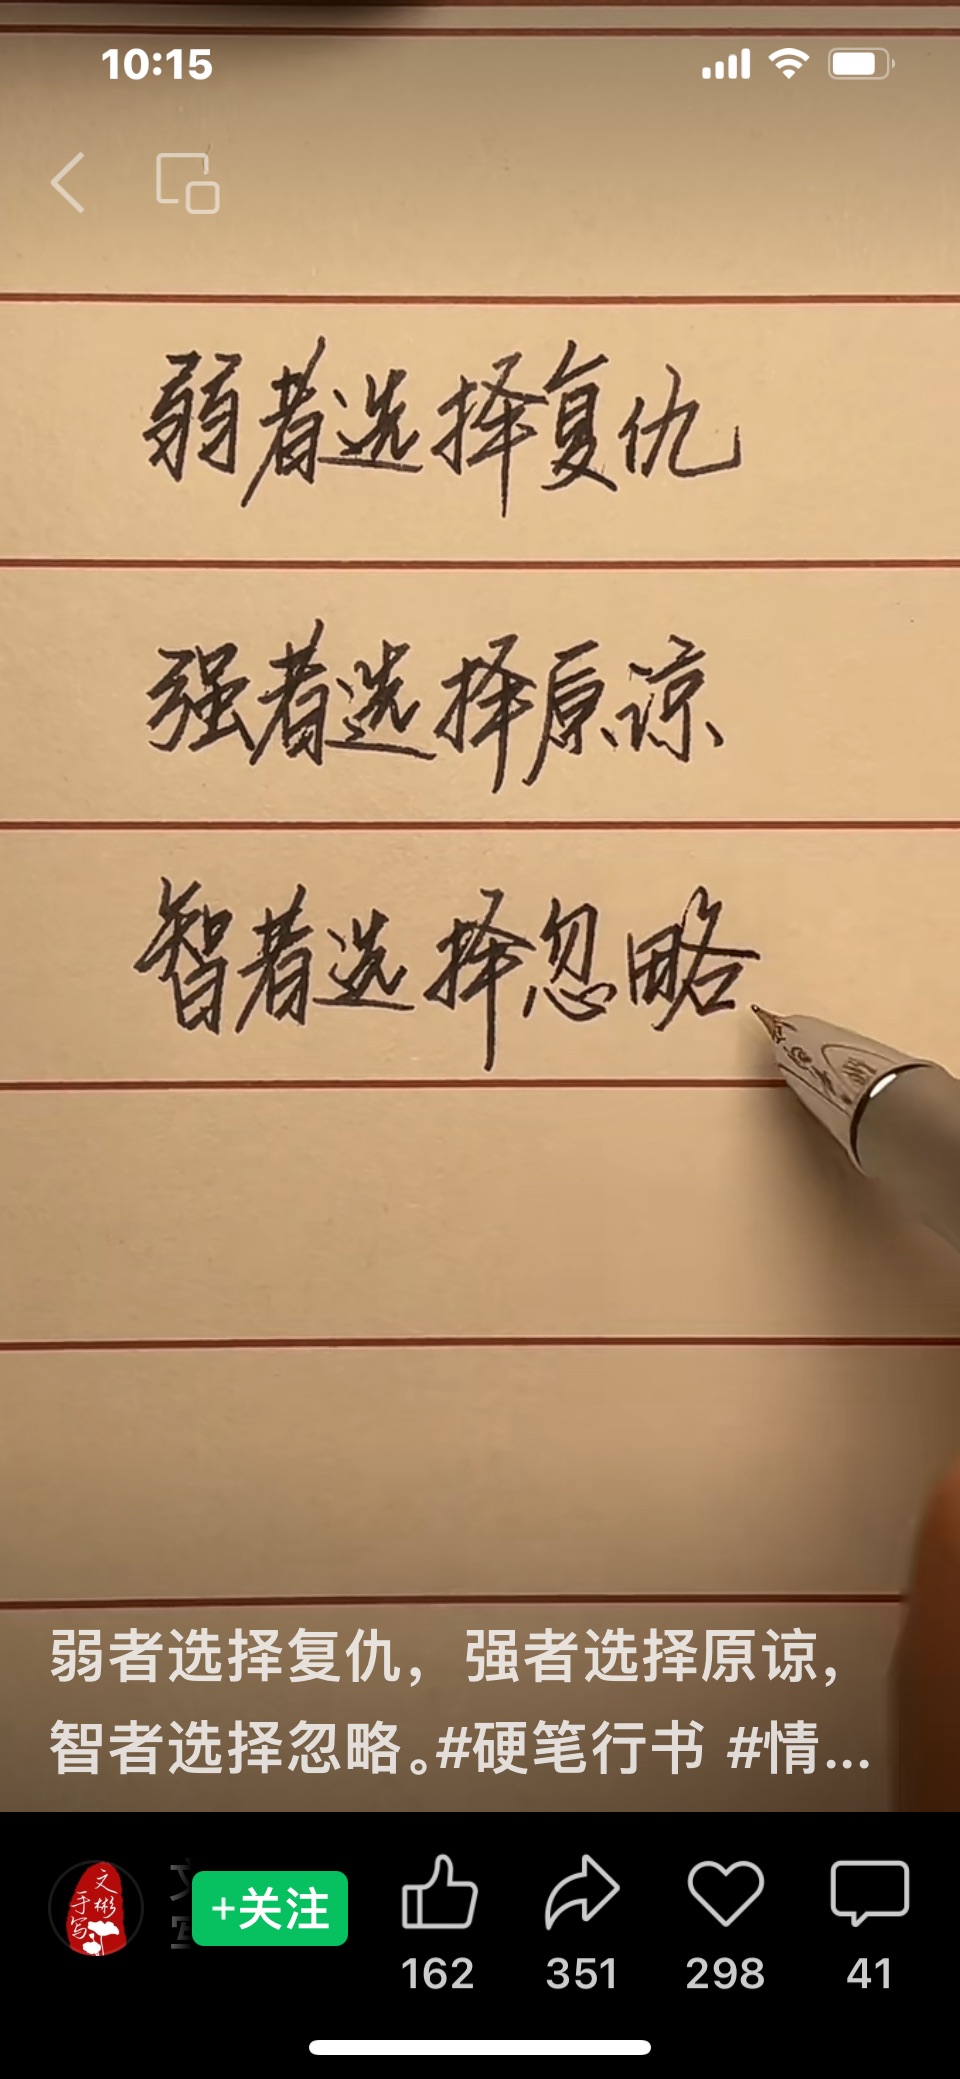 10:15
弱者选择复仇
强者选择原谅
智者选择忽略
弱者选择复仇，强者选择原谅，
智者选择忽略。#硬笔行书 #情...
文彬
手写
+关注
162 351 298 41